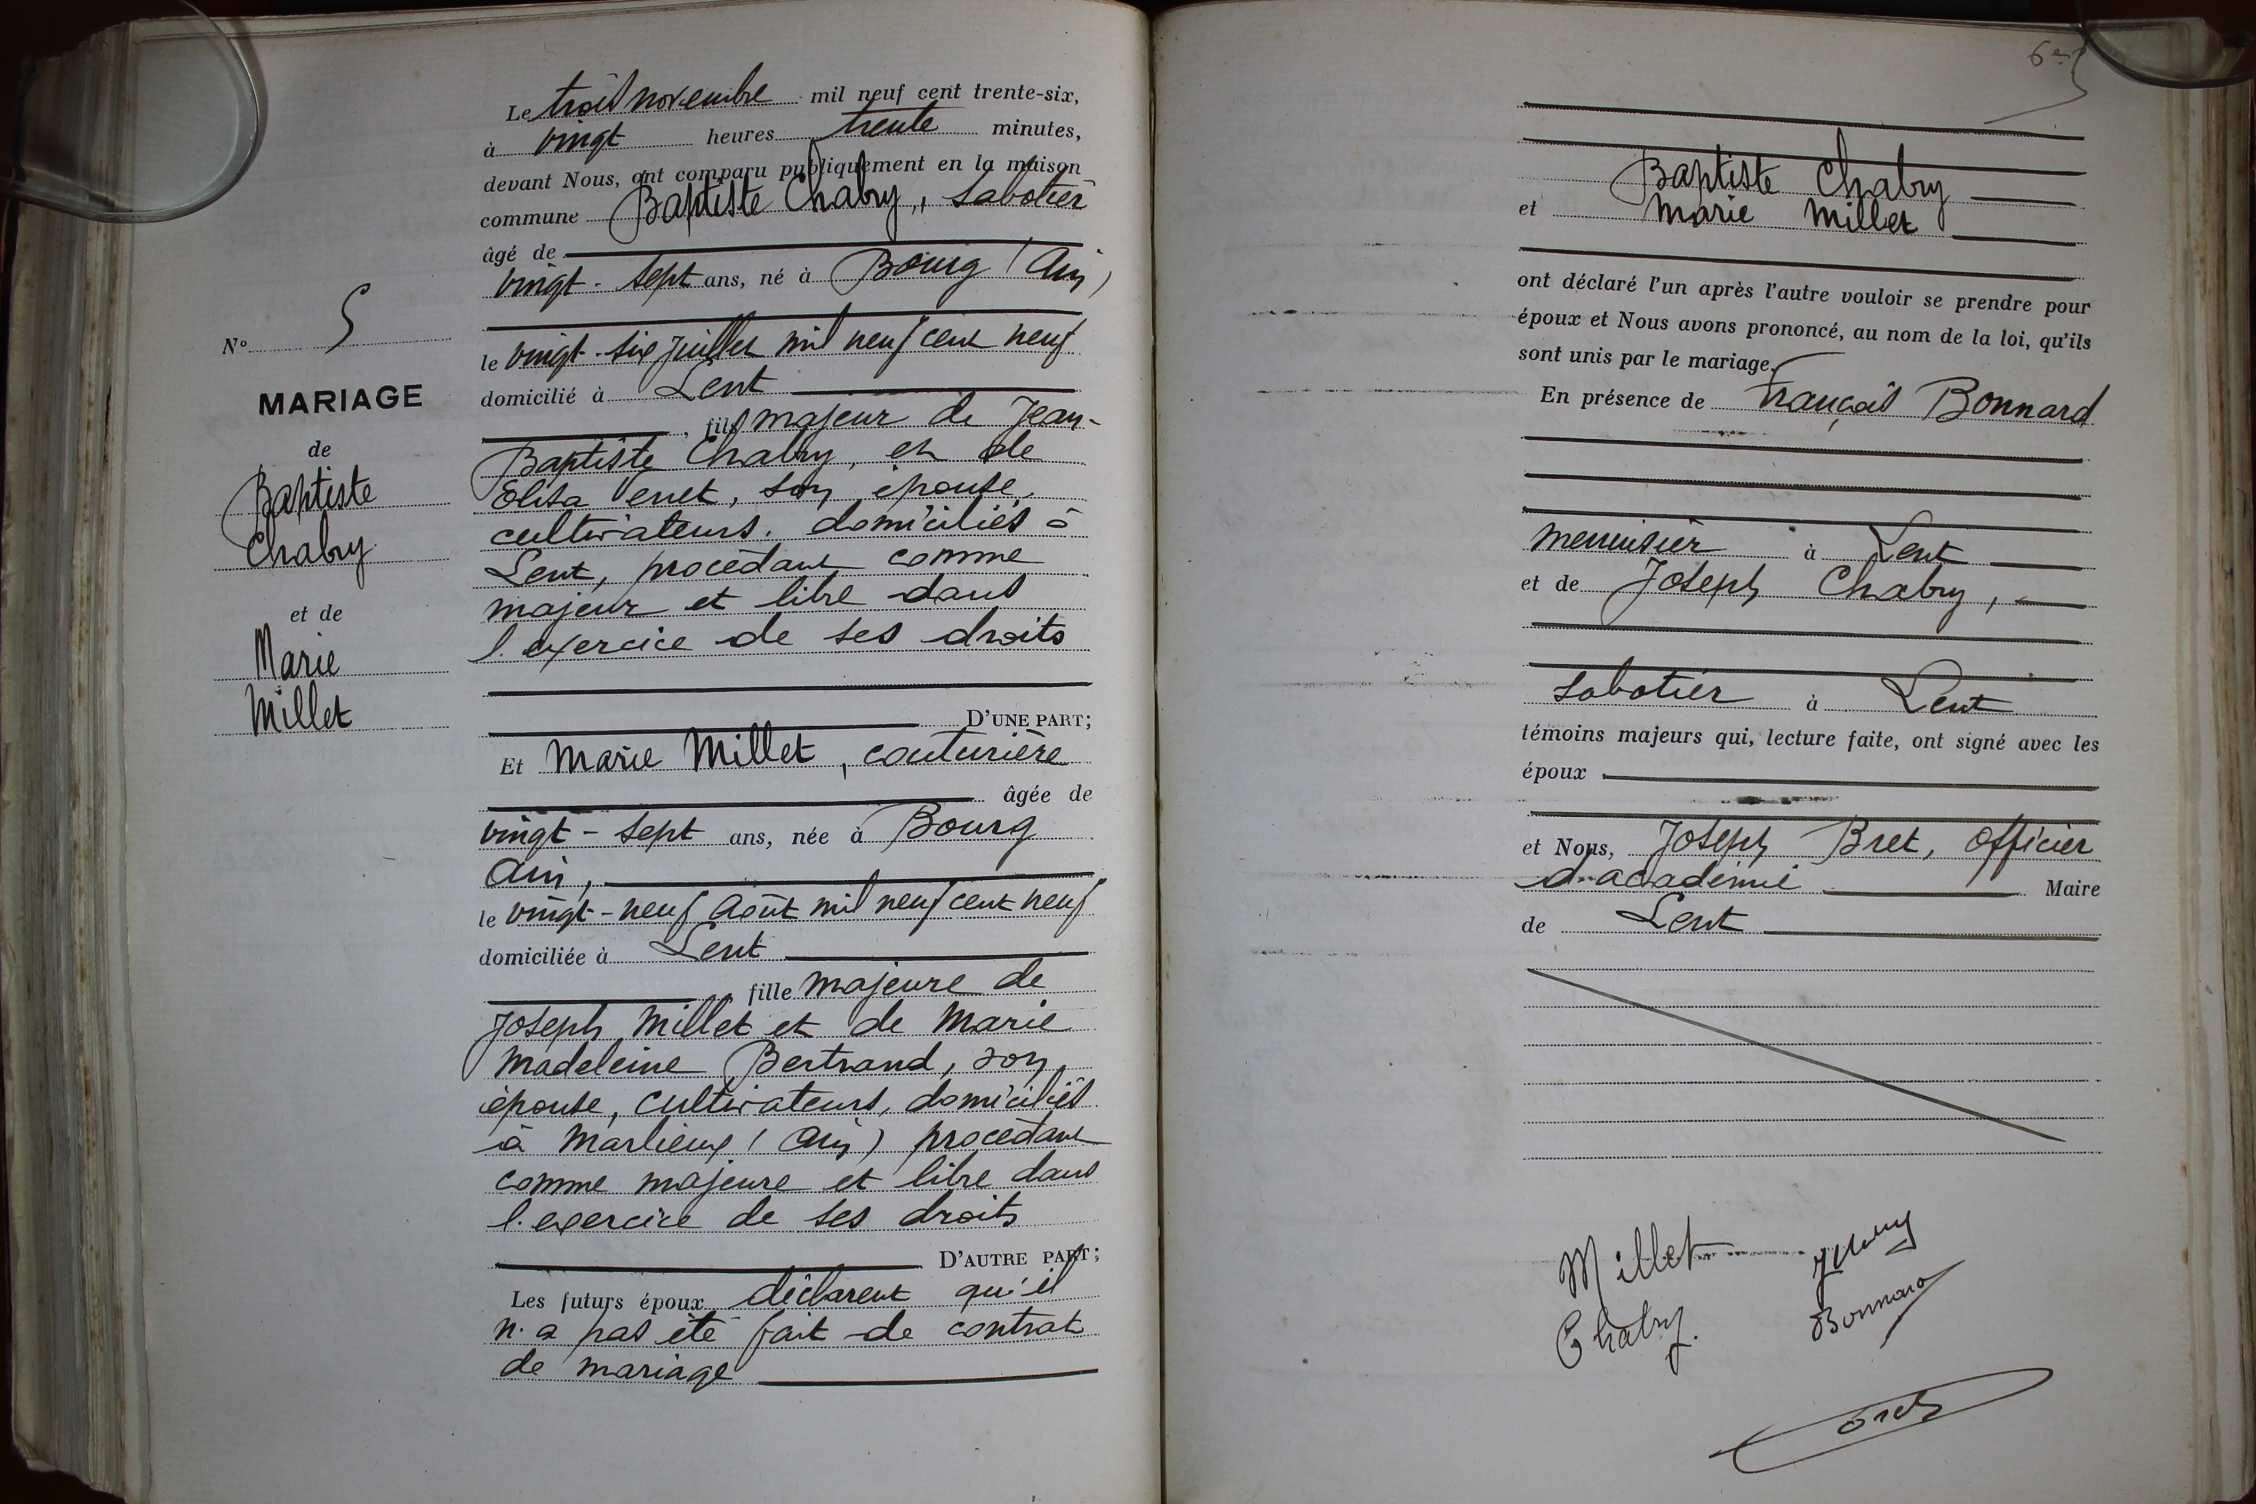 Le trois novembre mil neuf cent trente-six,
à vingt heures trente minutes,
devant Nous, ont comparu publiquement en la maison
commune Baptiste Chabry, sabotier
âgé de
vingt-sept ans, né à Bourg (Ain)
le vingt-six juillet mil neuf cent neuf
domicilié à Lent
, fils majeur de Jean-
Baptiste Chabry, et de
Elisa, son épouse,
cultivateurs, domiciliés à
Lent, procédant comme
majeur et libre dans
l'exercice de ses droits
D'UNE PART;
Et Marie Millet, couturière
âgée de
vingt-sept ans, née à Bourg
Ain,
le vingt-neuf août mil neuf cent neuf
domiciliée à Lent
, fille majeure de
Joseph Millet et de Marie
Madeleine Bertrand, son
épouse, cultivateurs, domiciliés
à Marlieux (Ain) procédant
comme majeure et libre dans
l'exercice de ses droits
D'AUTRE PART;
Les futurs époux déclarent qu'il
n'a pas été fait de contrat
de mariage
N° 5
MARIAGE
de
Baptiste
Chabry
et de
Marie
Millet
Baptiste Chabry
et Marie Millet
ont déclaré l'un après l'autre vouloir se prendre pour
époux et Nous avons prononcé, au nom de la loi, qu'ils
sont unis par le mariage.
En présence de François Bonnard
menuisier à Lent
et de Joseph Chabry,
sabotier à Lent
témoins majeurs qui, lecture faite, ont signé avec les
époux
et Nous, Joseph Bret, officier
d'académie Maire
de Lent
Millet
Chabry.
Bonnard